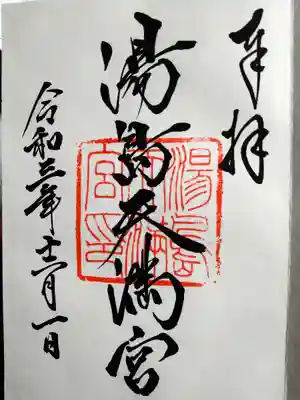 奉拝
湯島天満宮
湯島天満宮印
令和三年十一月一日